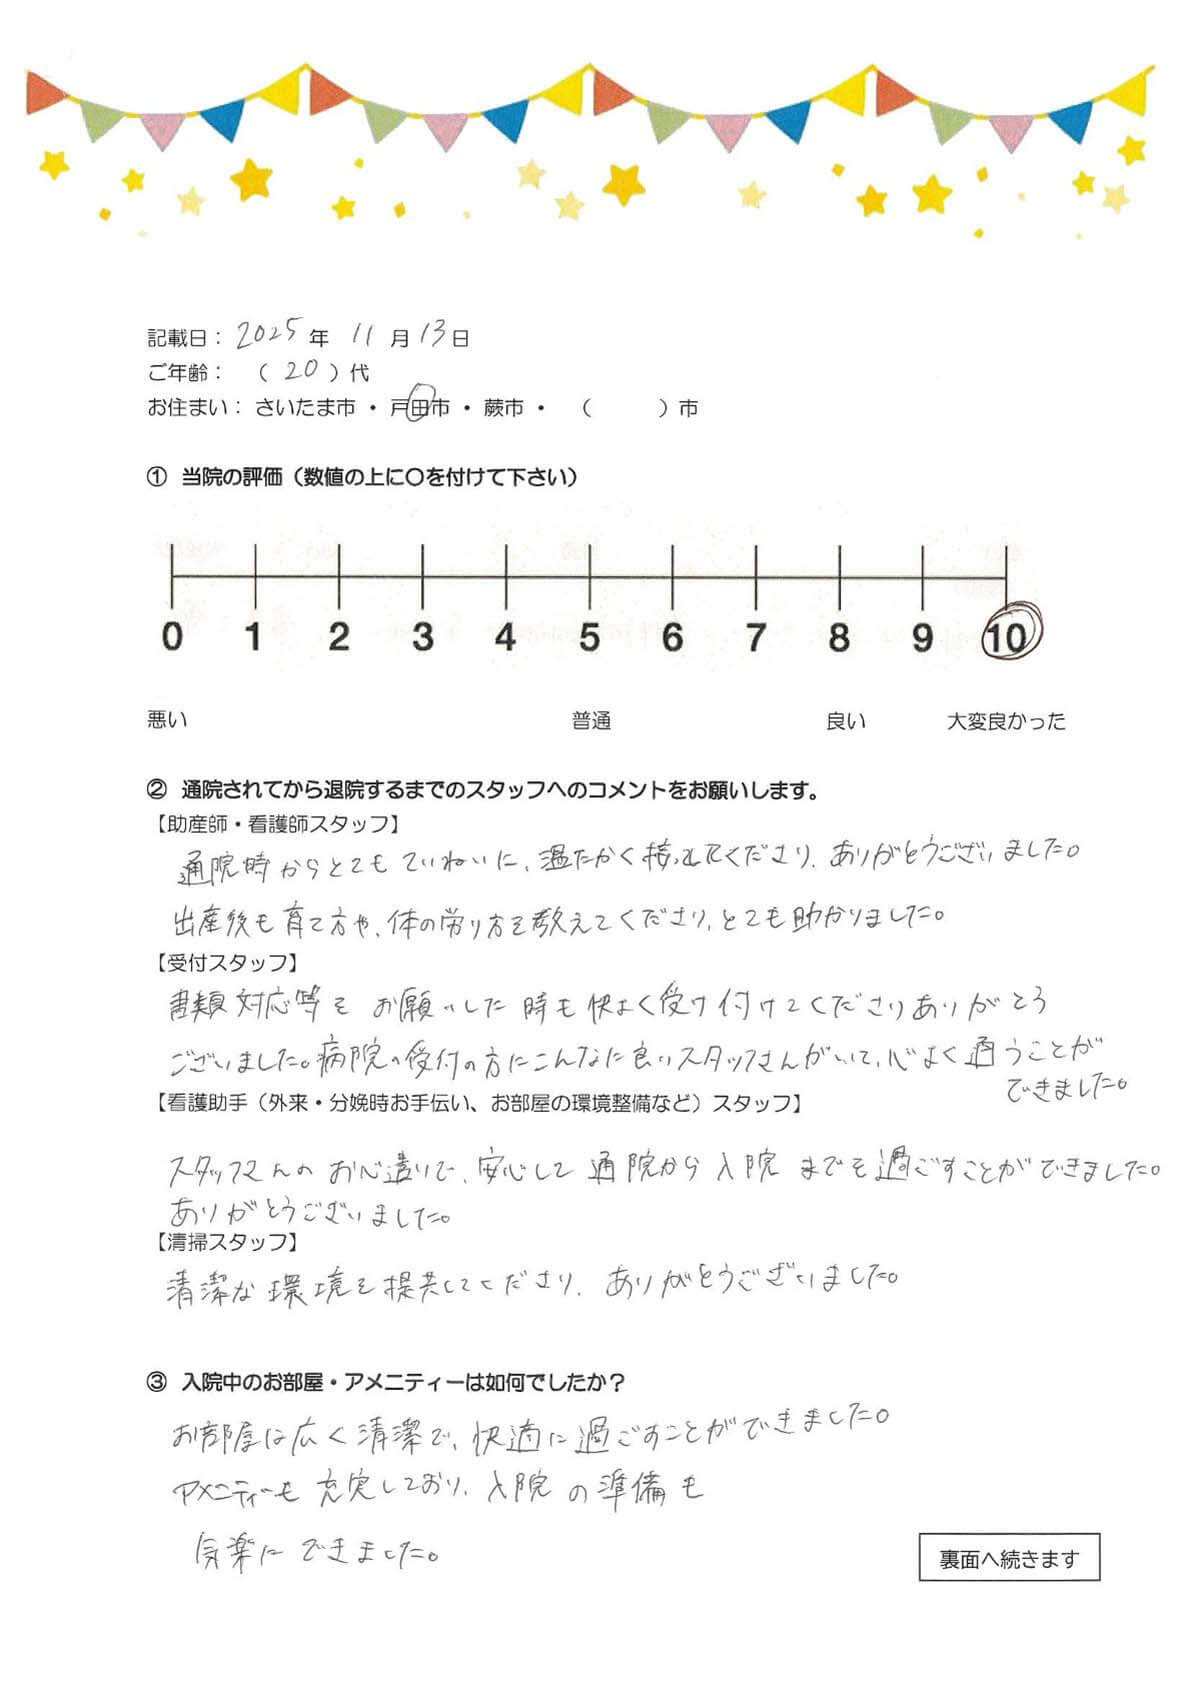 記載日： 2025 年 11 月 13 日
ご年齢： （ 20 ）代
お住まい： さいたま市 ・ 戸田市 ・ 蕨市 ・ （ ）市
① 当院の評価（数値の上に〇を付けて下さい）
0 1 2 3 4 5 6 7 8 9 10
悪い 普通 良い 大変良かった
② 通院されてから退院するまでのスタッフへのコメントをお願いします。
【助産師・看護師スタッフ】
通院時からとてもていねいに、温たかく接してくださり、ありがとうございました。
出産後も育て方や、体の労り方を教えてくださり、とても助かりました。
【受付スタッフ】
書類対応等をお願いした時も快よく受け付けてくださりありがとう
ございました。病院の受付の方にこんなに良いスタッフさんがいて、心よく通うことが
できました。
【看護助手（外来・分娩時お手伝い、お部屋の環境整備など）スタッフ】
スタッフさんのお心遣いで、安心して通院から入院までを過ごすことができました。
ありがとうございました。
【清掃スタッフ】
清潔な環境を提供してくださり、ありがとうございました。
③ 入院中のお部屋・アメニティーは如何でしたか？
お部屋は広く清潔で、快適に過ごすことができました。
アメニティーも充実しており、入院の準備も
気楽にできました。
裏面へ続きます